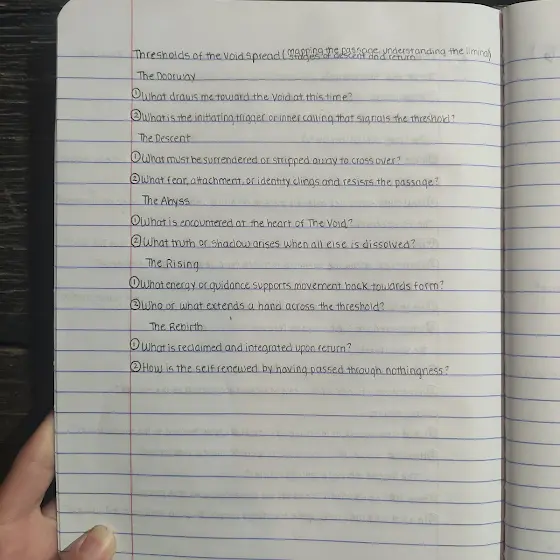 Thresholds of the Void Spread (mapping the passage, understanding the liminal)
stages of descent and return
The Doorway
① What draws me toward the Void at this time?
② What is the initiating trigger or inner calling that signals the threshold?
The Descent
① What must be surrendered or stripped away to cross over?
② What fear, attachment, or identity clings and resists the passage?
The Abyss
① What is encountered at the heart of The Void?
② What truth or shadow arises when all else is dissolved?
The Rising
① What energy or guidance supports movement back towards form?
② Who or what extends a hand across the threshold?
The Rebirth
① What is reclaimed and integrated upon return?
② How is the self renewed by having passed through nothingness?